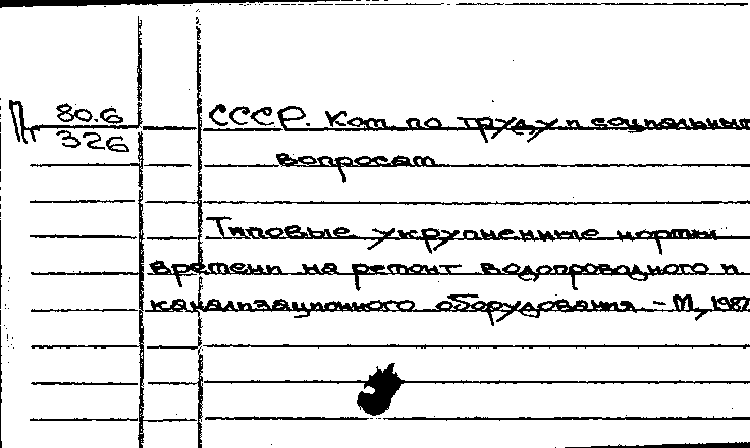 Пт 80.6
326
СССР. Ком. по труду и социальным
вопросам
Типовые укрупненные нормы
времени на ремонт водопроводного и
канализационного оборудования. - М., 1987